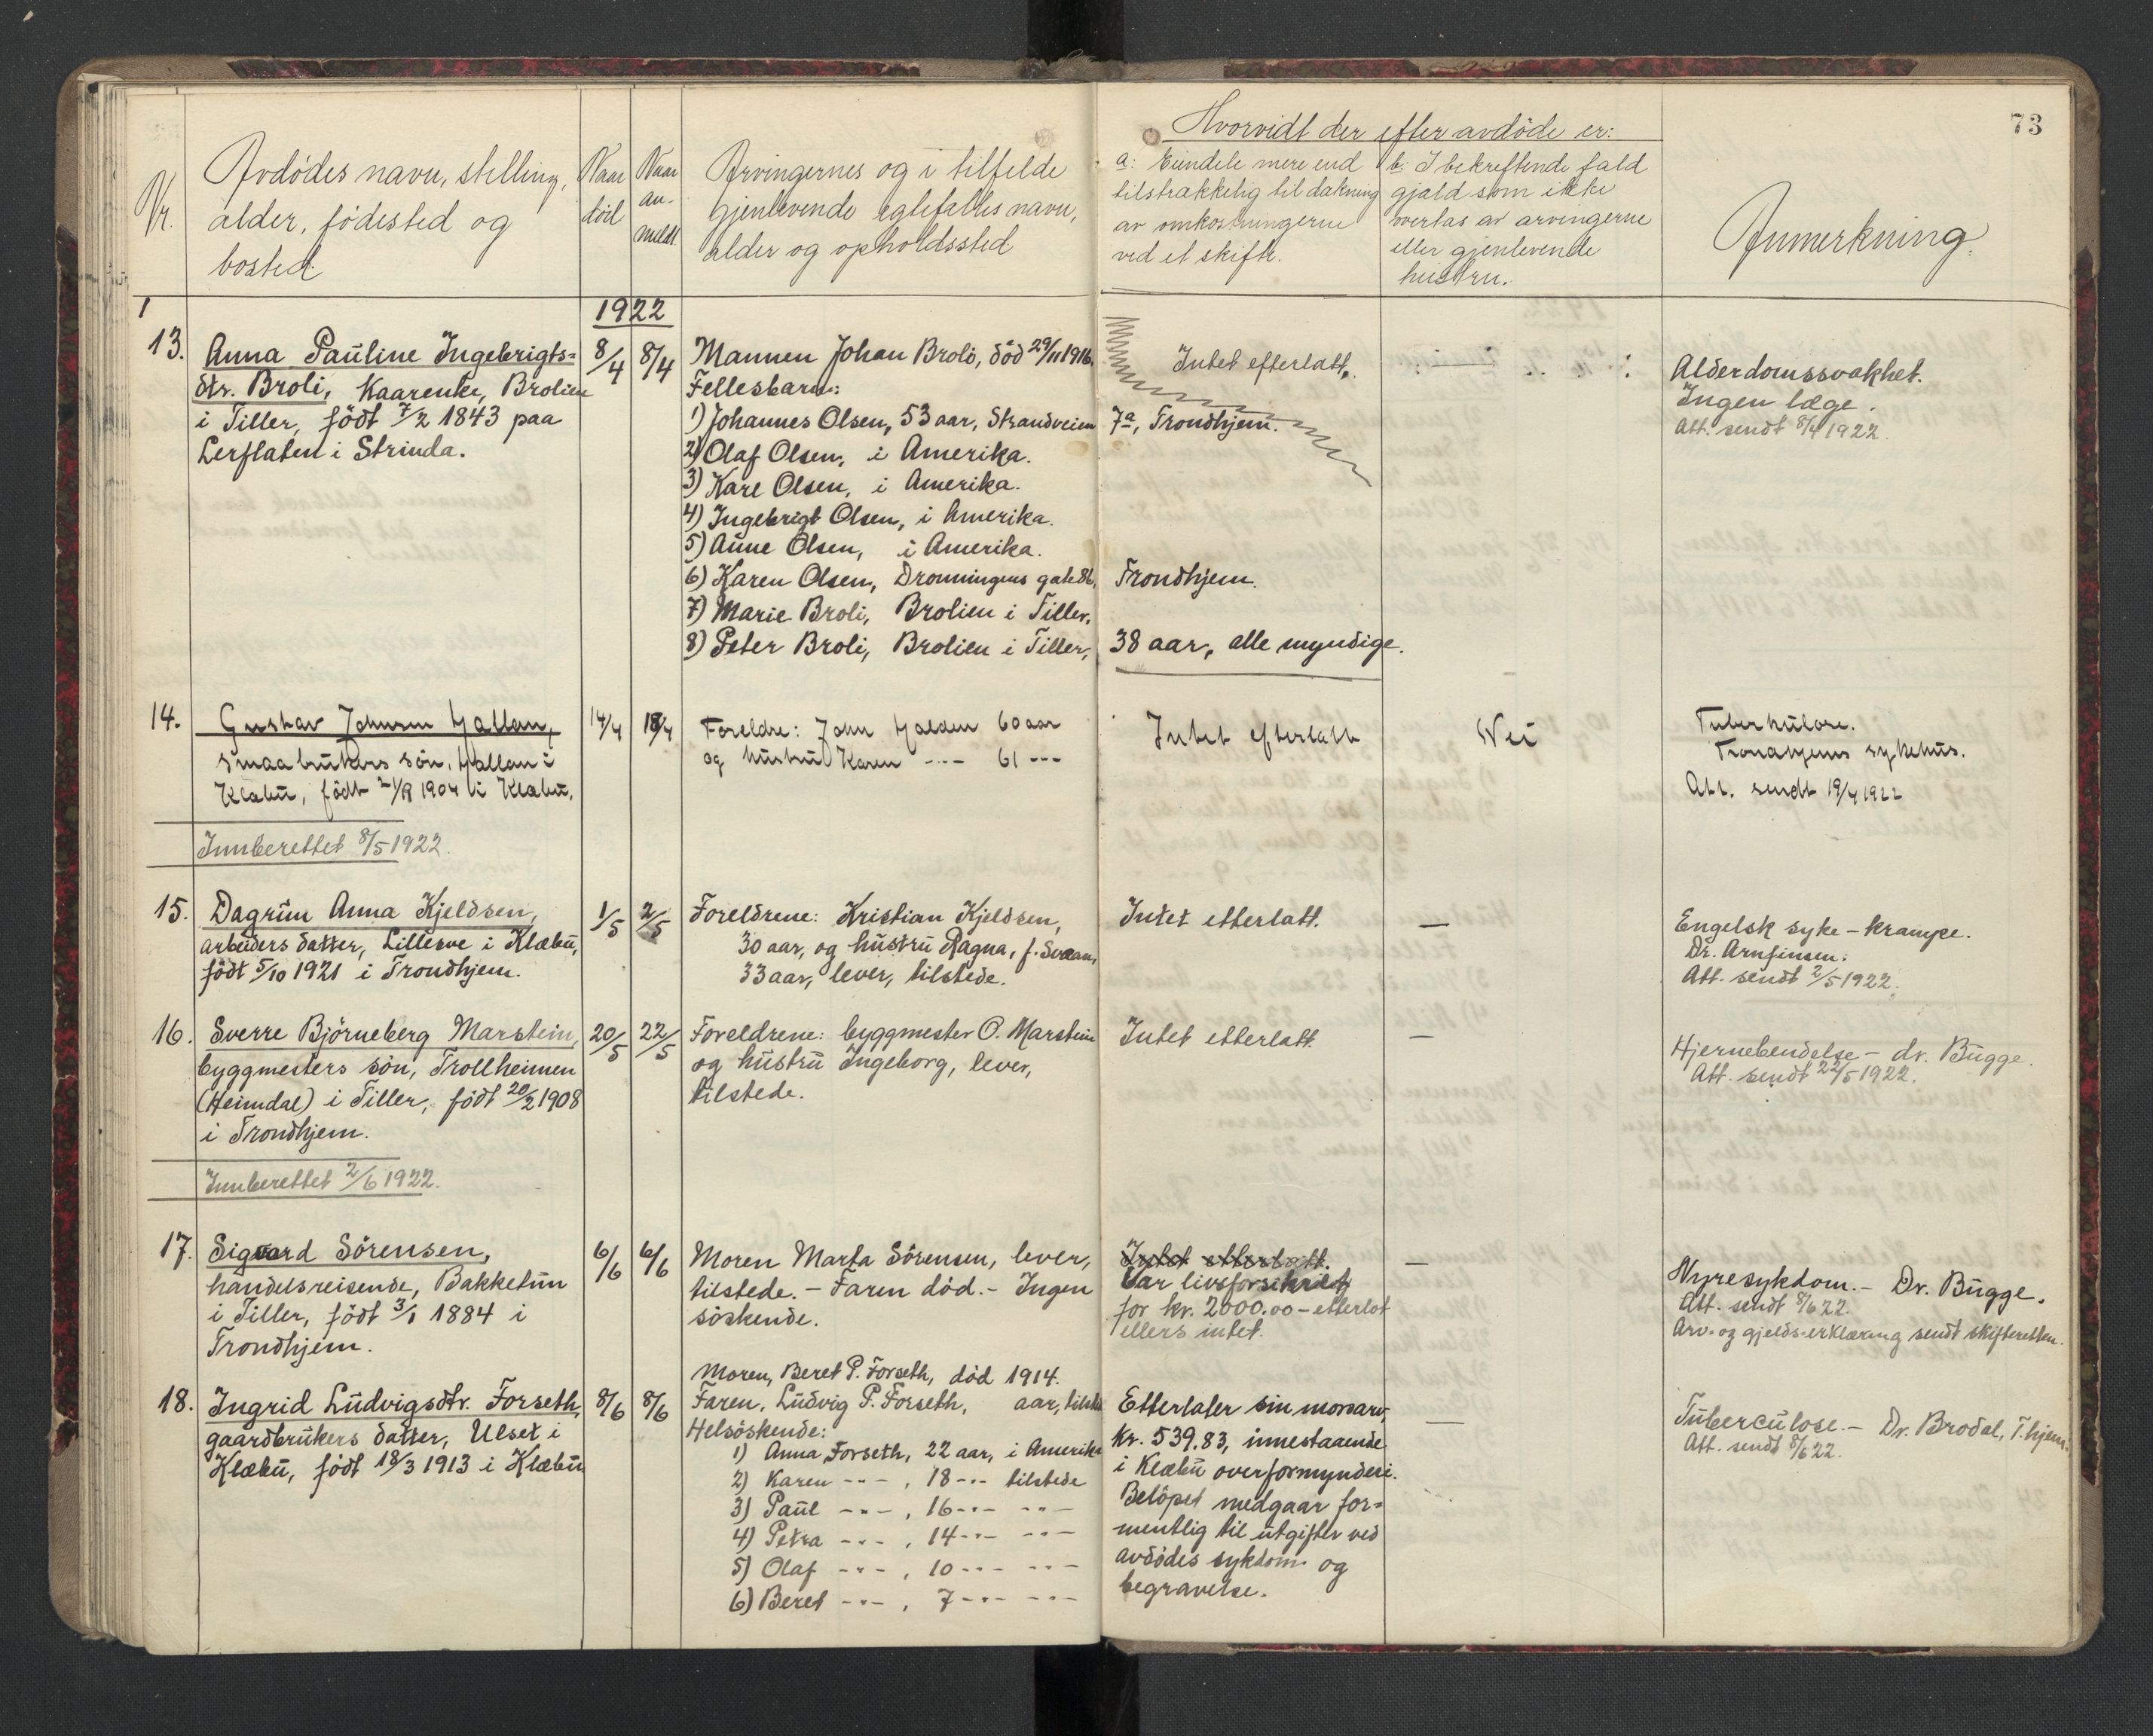 73
Nr.
Avdödes navn, stilling,
alder, födested og
bosted.
Naar
död
Naar
an-
meldt.
Arvingernes og i tilfelde
gjenlevende egtefælles navn,
alder og opholdssted
Hvorvidt der efter avdöde er:
a: Eiendele mere end
tilstrækkelig til dækning
av omkostningerne
ved et skifte.
b: I bekreftende fald
gjæld som ikke
overtas av arvingerne
eller gjenlevende
hustru.
Anmerkning.
1
1922
13.
Anna Pauline Ingebrigts=
dtr. Broli, kaarenke, Brolien
i Tiller, födt 7/2 1843 paa
Lerflaten i Strinda.
8/4
8/4
Mannen Johan Broli, död 29/11 1916.
Fellesbarn:
1) Johannes Olsen, 53 aar, Strandveien 7a, Trondhjem.
2) Olaf Olsen, i Amerika.
3) Karl Olsen, i Amerika.
4) Ingebrigt Olsen, i Amerika.
5) Anne Olsen, i Amerika.
6) Karen Olsen, Dronningens gate 86, Trondhjem.
7) Marie Broli, Brolien i Tiller,
8) Peter Broli, Brolien i Tiller, 38 aar, alle myndige.
Intet efterlatt.
Alderdomssvakhet.
Ingen læge.
Att. sendt 8/4 1922.
14.
Gustav Johnsen Hallan,
smaabrukers sön, Hallan i
Klæbu, födt 21/9 1904 i Klæbu.
14/4
18/4
Foreldre: John Halden 60 aar
og hustru Karen -..- 61 -..-
Intet efterlatt
Nei
Tuberkulose.
Trondhjems sykehus.
Att. sendt 19/4 1922
Innberettet 8/5 1922.
15.
Dagrun Anna Kjeldsen,
arbeiders datter, Lilleeve i Klæbu,
födt 5/10 1921 i Trondhjem.
1/5
2/5
Foreldrene: Kristian Kjeldsen,
30 aar, og hustru Ragna, f. Svean,
33 aar, lever, tilstede.
Intet etterlatt.
—
Engelsk syke - krampe.
Dr. Arnfinsen.
Att. sendt 2/5 1922.
16.
Sverre Björneberg Marstein,
byggmesters sön, Trollheimen
(Heimdal) i Tiller, födt 20/2 1908
i Trondhjem.
20/5
22/5
Foreldrene: byggmester O. Marstein
og hustru Ingeborg, lever,
tilstede.
Intet etterlatt.
—
Hjernebendelse - dr. Bugge.
Att. sendt 22/5 1922.
Innberettet 2/6 1922.
17.
Sigvard Sörensen,
handelsreisende, Bakketun
i Tiller, födt 3/1 1884 i
Trondhjem.
6/6
6/6
Moren Marta Sörensen, lever,
tilstede. - Faren död. - Ingen
söskende.
Intet etterlatt.
Var livsforsikret
for kr. 2000.00 - etterlot
ellers intet.
—
Nyresykdom. - Dr. Bugge.
Att. sendt 8/6 22.
Arv- og gjelds-erklæring sendt skifteretten.
18.
Ingrid Ludvigsdtr. Forseth,
gaardbrukers datter, Ulset i
Klæbu, födt 18/3 1913 i Klæbu
8/6
8/6
Moren, Beret P. Forseth, död 1914.
Faren, Ludvig P. Forseth, aar, tilstede
Helsöskende:
1) Anna Forseth, 22 aar, i Amerika
2) Karen -..- , 18 -..- tilstede
3) Paul -..- , 16 -..- -..-
4) Petra -..- , 14 -..- -..-
5) Olaf -..- , 10 -..- -..-
6) Beret -..- , 7 -..- -..-
Etterlater sin morsarv,
kr. 539.83, innestaaende
i Klæbu overformynderi.
Belöpet medgaar for=
mentlig til utgifter ved
avdödes sykdom og
begravelse.
—
Tuberculose. - Dr. Brodal, T.hjem.
Att. sendt 8/6 22.